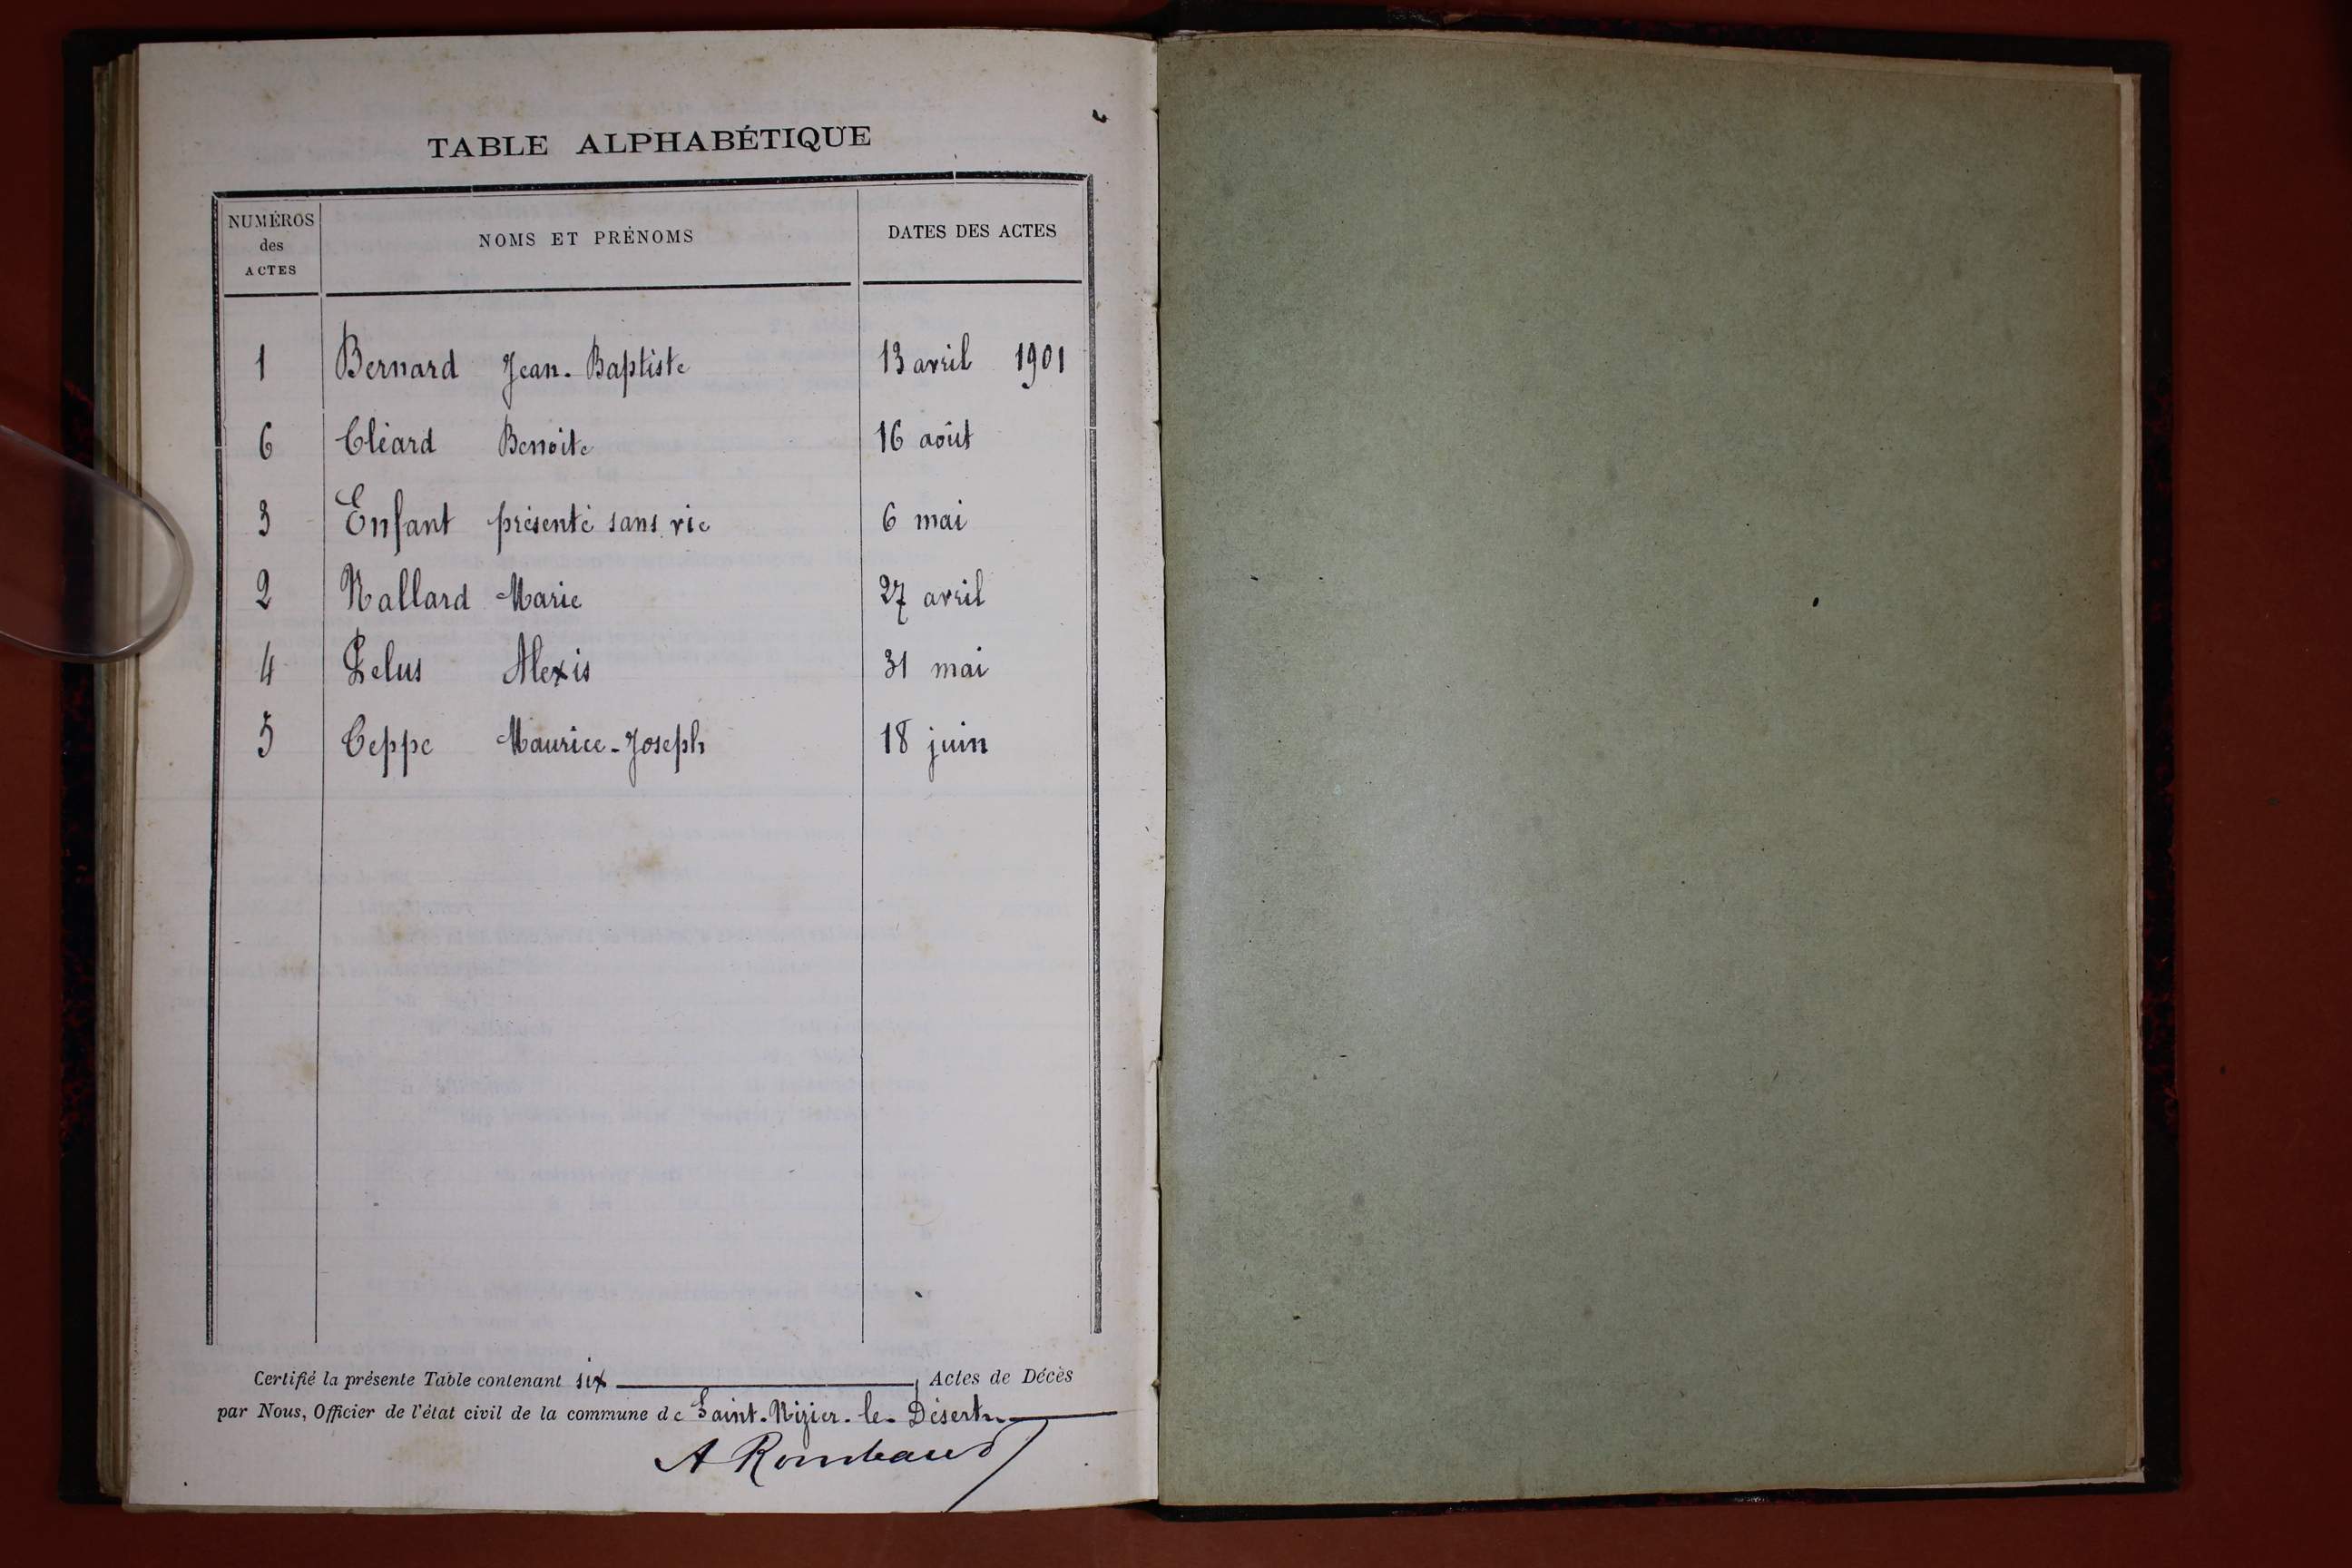 TABLE ALPHABÉTIQUE
NUMÉROS des ACTES NOMS ET PRÉNOMS DATES DES ACTES
1 Bernard Jean-Baptiste 13 avril 1901
6 Cléard Benoite 16 août
3 Enfant présenté sans vie 6 mai
2 Nallard Marie 27 avril
4 Pelus Alexis 31 mai
5 Teppe Maurice-Joseph 18 juin
Certifié la présente Table contenant six Actes de Décès
par Nous, Officier de l'état civil de la commune de Saint-Nizier-le-Désert